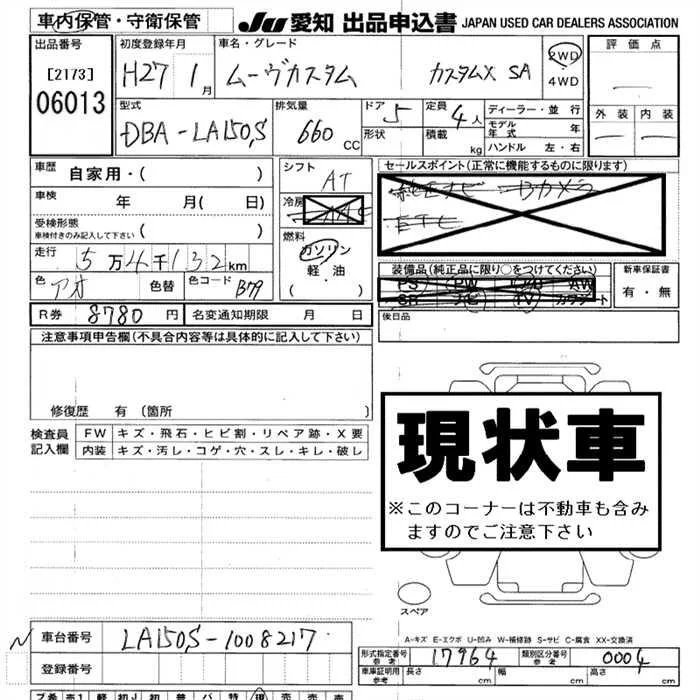 車内保管・守衛保管
JU 愛知 出品申込書 JAPAN USED CAR DEALERS ASSOCIATION
出品番号
[2173]
06013
初度登録年月
H27 1月
車名・グレード
ムーヴカスタム カスタムX SA
2WD
・
4WD
評価点
外装 内装
型式
DBA-LA150S
排気量
660 CC
ドア 5
形状
定員 4人
積載 kg
ディーラー・並行
モデル年式 年
ハンドル 左・右
車歴 自家用・( )
車検 年 月( 日)
受検形態
車検付きのみ記入して下さい ( )
走行 5万4千132km
色 アオ 色替 色コード B79
シフト
AT
冷房
燃料
ガソリン
軽・油
( ・ )
セールスポイント(正常に機能するものに限ります)
純正ナビ Bカメラ
ETC
装備品(純正品に限り○をつけてください)
PS PW AW
SR ナビ TV カワシート
新車保証書
有・無
R券 8780 円 名変通知期限 月 日
後日品
注意事項申告欄(不具合内容等は具体的に記入して下さい)
修復歴 有 (箇所 )
検査員
記入欄
FW キズ・飛石・ヒビ割・リペア跡・X要
内装 キズ・汚レ・コゲ・穴・スレ・キレ・破レ
現状車
※このコーナーは不動車も含み
ますのでご注意下さい
スペア
A-キズ E-エクボ U-凹み W-補修跡 S-サビ C-腐食 XX-交換済
車台番号 LA150S-1008217
登録番号
型式指定番号
参考
17964
類別区分番号
参考
0004
車庫証明用
参考
長さ cm 幅 cm 高さ cm